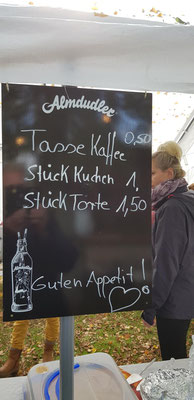 Almdudler
Tasse Kaffee 0,50
Stück Kuchen 1,
Stück Torte 1,50
Guten Appetit!